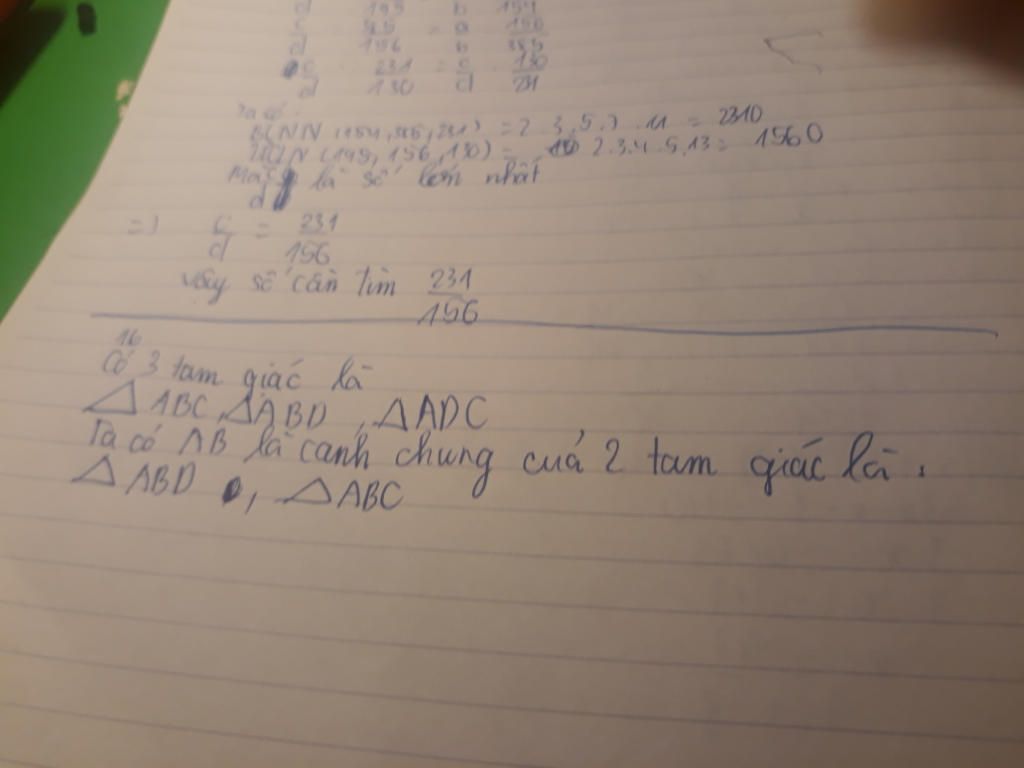 d 195 b 154
c 385 = a 156
d 156 b 385
c 231 = c 130
d 130 d 231
Ta có:
BCNN (154, 385, 231) = 2.3.5.7.11 = 2310
ƯCLN (195, 156, 130) = 2.3.4.5.13 = 1560
là số lớn nhất
d
=) c = 231
d 156
vậy số cần tìm 231
156
16
Có 3 tam giác là
△ ABC, △ABD, △ADC
Ta có AB là cạnh chung của 2 tam giác là:
△ ABD, △ABC